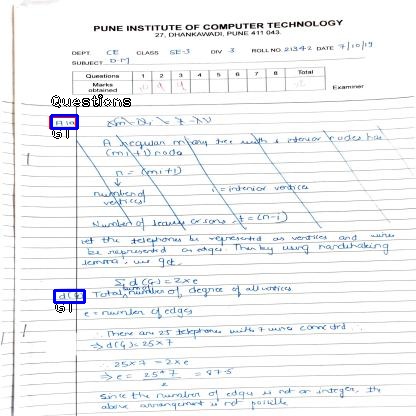 PUNE INSTITUTE OF COMPUTER TECHNOLOGY
27, DHANKAWADI, PUNE 411 043.
DEPT. CE CLASS SE-3 DIV 3 ROLL NO. 21342 DATE 7/10/19
SUBJECT D.M
Questions 1 2 3 4 5 6 7 8 Total
Marks obtained
Examiner
Questions
A regular m-ary tree with i interior nodes has
(mi+1) node
n = (mi+1)
number of vertices i = interior vertices
Number of leaves or sons t = (n-i)
Let the telephones be represented as vertices and wires
be represented as edges. Then by using handshaking
lemma, we get.
Σ d(G) = 2×e
Total number of degree of all vertices
e = number of edges
There are 25 telephones with 7 wires connected
⇒ d(G) = 25×7
∴ 25×7 = 2×e
∴ e = 25*7 / 2 = 87.5
Since the number of edges is not an integer, the
above arrangement is not possible